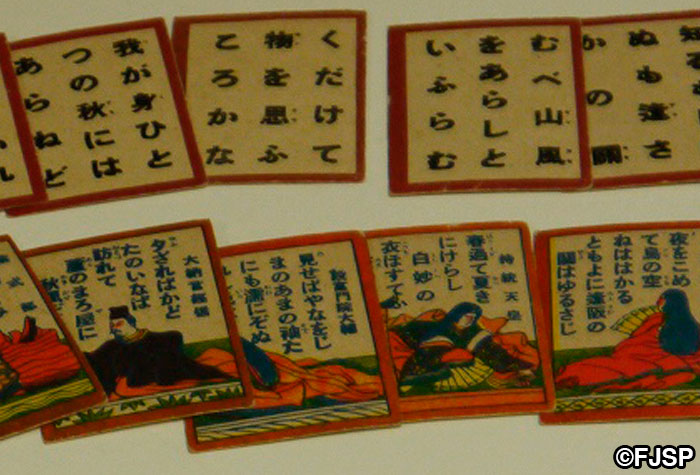 知る
ぬも逢さ
かの關
むべ山風
をあらしと
いふらむ
くだけて
物を思ふ
ころかな
我が身ひと
つの秋には
あらねど
夜をこめ
て鳥の空
ねははかる
ともよに逢阪の
關はゆるさじ
持統天皇
春過て夏き
にけらし
白妙の
衣ほすてふ
殷富門院大輔
見せばやなをじ
まのあまの袖だ
にも濡にぞぬ
大納言經信
夕さればかど
たのいなば
訪れて
蘆のまろ屋に
秋
©FJSP